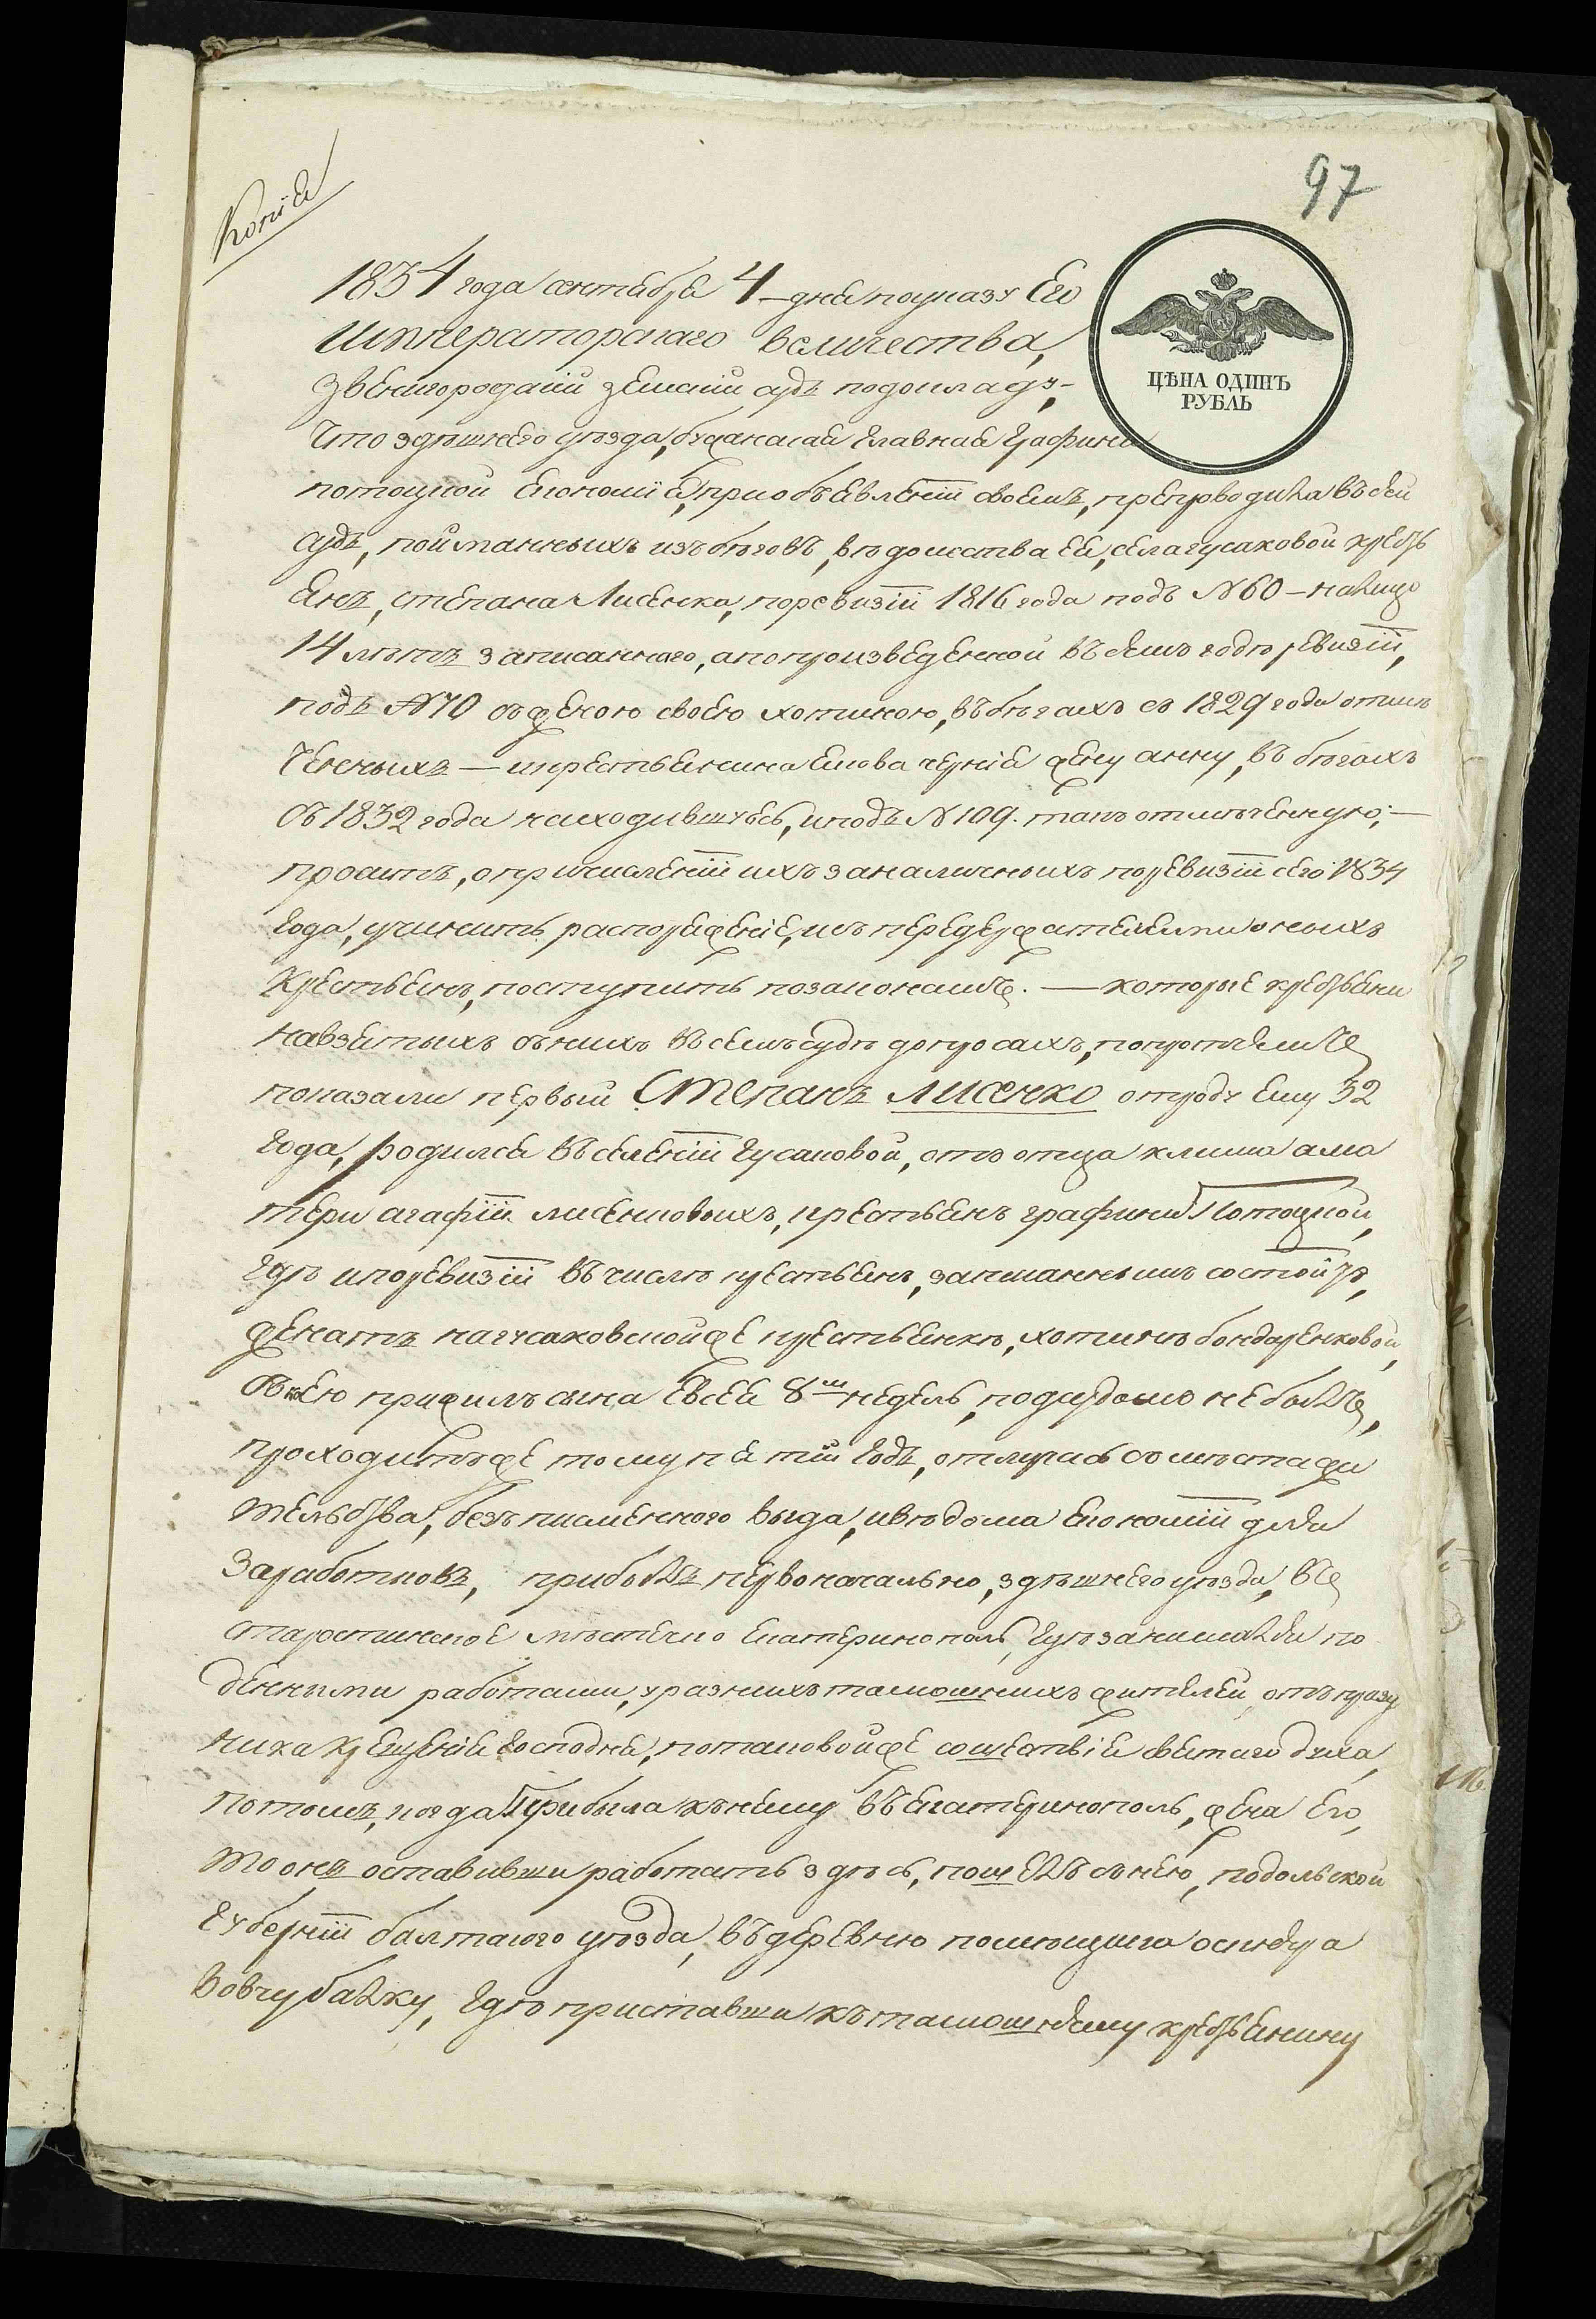 97
Копія
1834 года сентября 4 – дня поуказу Его
Императорскаго величества,
Звенигородскій земскій судъ подокладу,–
Что здѣшнего уѣзда, бужанская главная графини
потоцкой Економія, приобъявленіи своемъ, препроводила въсей
судъ, пойманныхъ изъбѣговъ, вѣдомства ея, села гусаковой крестьянъ
янъ, степана Лисенка, поревизіи 1816 года подъ №60 – налицо
14 лѣтъ записаннаго, апопроизведенной въсемъ годѣ ревизіи,
подъ №70 съженою своею хотиною, вбѣгахъ съ 1829 года отмѣ
ченныхъ — икрестьянина якова чернія жену анну, въ бѣгахъ
съ 1832 года находившуюсь, иподъ №109. такъ отмѣченную; —
проситъ, опричисленіи ихъ заналичныхъ поревизіи сего 1834
года, учинить распоряженіе, исъ передержателями оныхъ
Крестьянъ, поступить позаконамъ. — которые крестьяни
навзятыхъ съних въсемъсудѣ допросахъ, попунктамъ
показали первый Степанъ Лисенко отроду ему 32
года, родился въселеніи гусаковой, отъ отца клима ама
тери агафіи лисенковыхъ, крестьянъ графини Потоцкой,
гдѣ ипоревизіи въчислѣ крестьянъ, записаннымъ состоитъ,
женатъ нагусаковскойже крестьянкѣ, хотинѣ бондаренковой,
съ нею прижилъ сына евсея 8ми недель, подсудомъ не былъ,
проходитъже тому пятій годъ, отлучась съ мѣста жи
тельства, безъписменного выда, ивѣдома Економіи для
Заработковъ, прибылъ первоначально, здѣшнего уѣзда, въ
старостинское мѣстечко Екатеринополь, гдѣ занимался по
денными работами, у разнихътамошнихъ жителей, отъпразд
ника крещенія господня, потаковойже сошествія святаго духа,
Потомъ, когда Прибыла кънему въЕкатеринополь, жена его,
то онъ оставивши работать здѣсь, пошелъ сънею, подольской
губерніи балтского уѣзда, въдеревню помѣщика
вовчу балку, гдѣ приставши кътамошнему крестьянину
ЦѢНА ОДИНЪ
РУБЛЬ